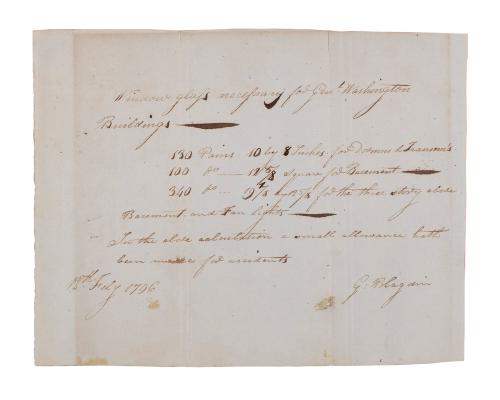 Window glass necessary for Genl Washington
Buildings
130 Pains 10 by 8 Inches for Dormns & Transom's
100 do 12 5/8 square for Basement
340 do by 12 5/8 for the three story above
Basement and Fan lights
In the above calculation a small allowance hath
been made for accidents
Feby
G: Blagdin